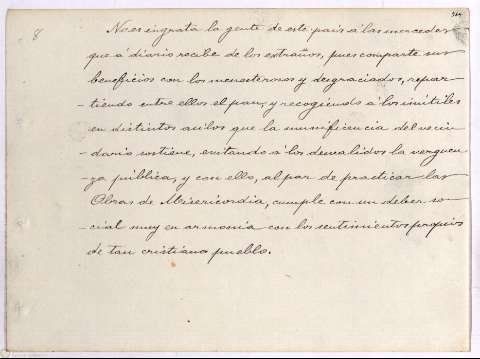 8
No es ingrata la gente de este pais á las mercedes
que á diario recibe de los extraños, pues comparte sus
beneficios con los menesterosos y desgraciados, repar-
-tiendo entre ellos el pan, y recogiéndolos á los inútiles
en distintos asilos que la munificencia del vecin-
-dario sostiene, evitando á los desvalidos la verguen-
-za pública, y con ello, al par de practicar las
Obras de Misericordia, cumple con un deber so-
-cial muy en armonia con los sentimientos propios
de tan cristiano pueblo.